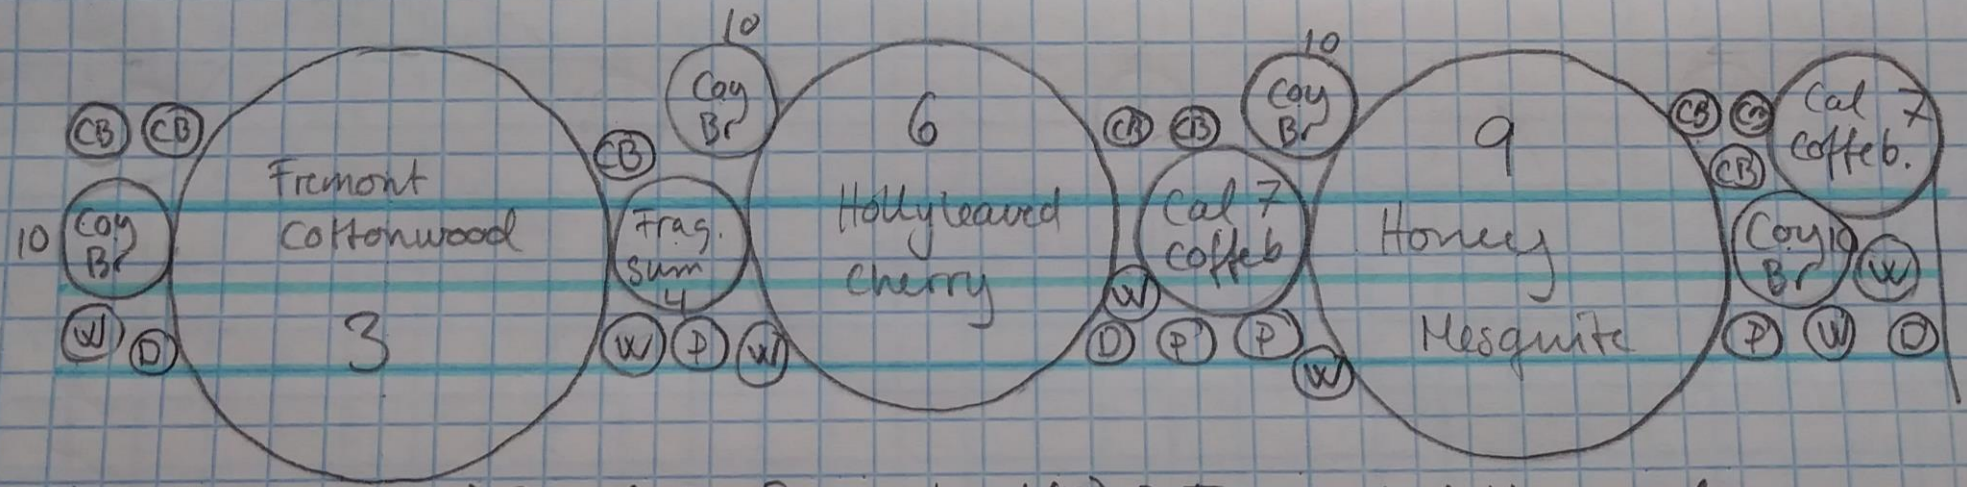 CB CB
Fremont
Cottonwood
3
10 Coy
Br
W D
CB
10
Coy
Br
Frag.
sum
4
W P W
6
Hollyleaved
cherry
CB CB
10
Coy
Br
Cal 7
coffeb
W
D P P
W
9
Honey
Mesquite
CB
CB
Cal 7
coffeb.
Coy 10
Br
W
P W D